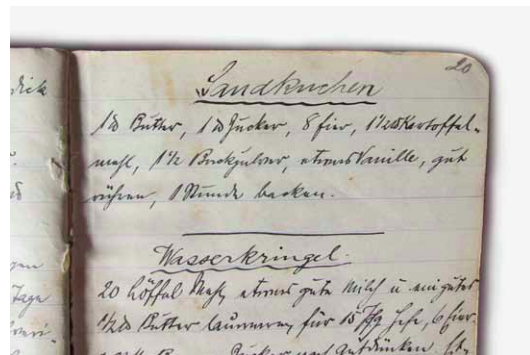 dick
20
Sandkuchen
1 ℔ Butter, 1 ℔ Zucker, 8 Eier, 1½ ℔ Kartoffel-
mehl, 1½ Backpulver, etwas Vanille, gut
rühren, 1 Stunde backen.
Wasserkringel.
20 Löffel Mehl, etwas gute Milch u ein gutes
Tage
½ ℔ Butter für 15 Pfg Hefe, 6 Eier
Zucker nach Gutdünken